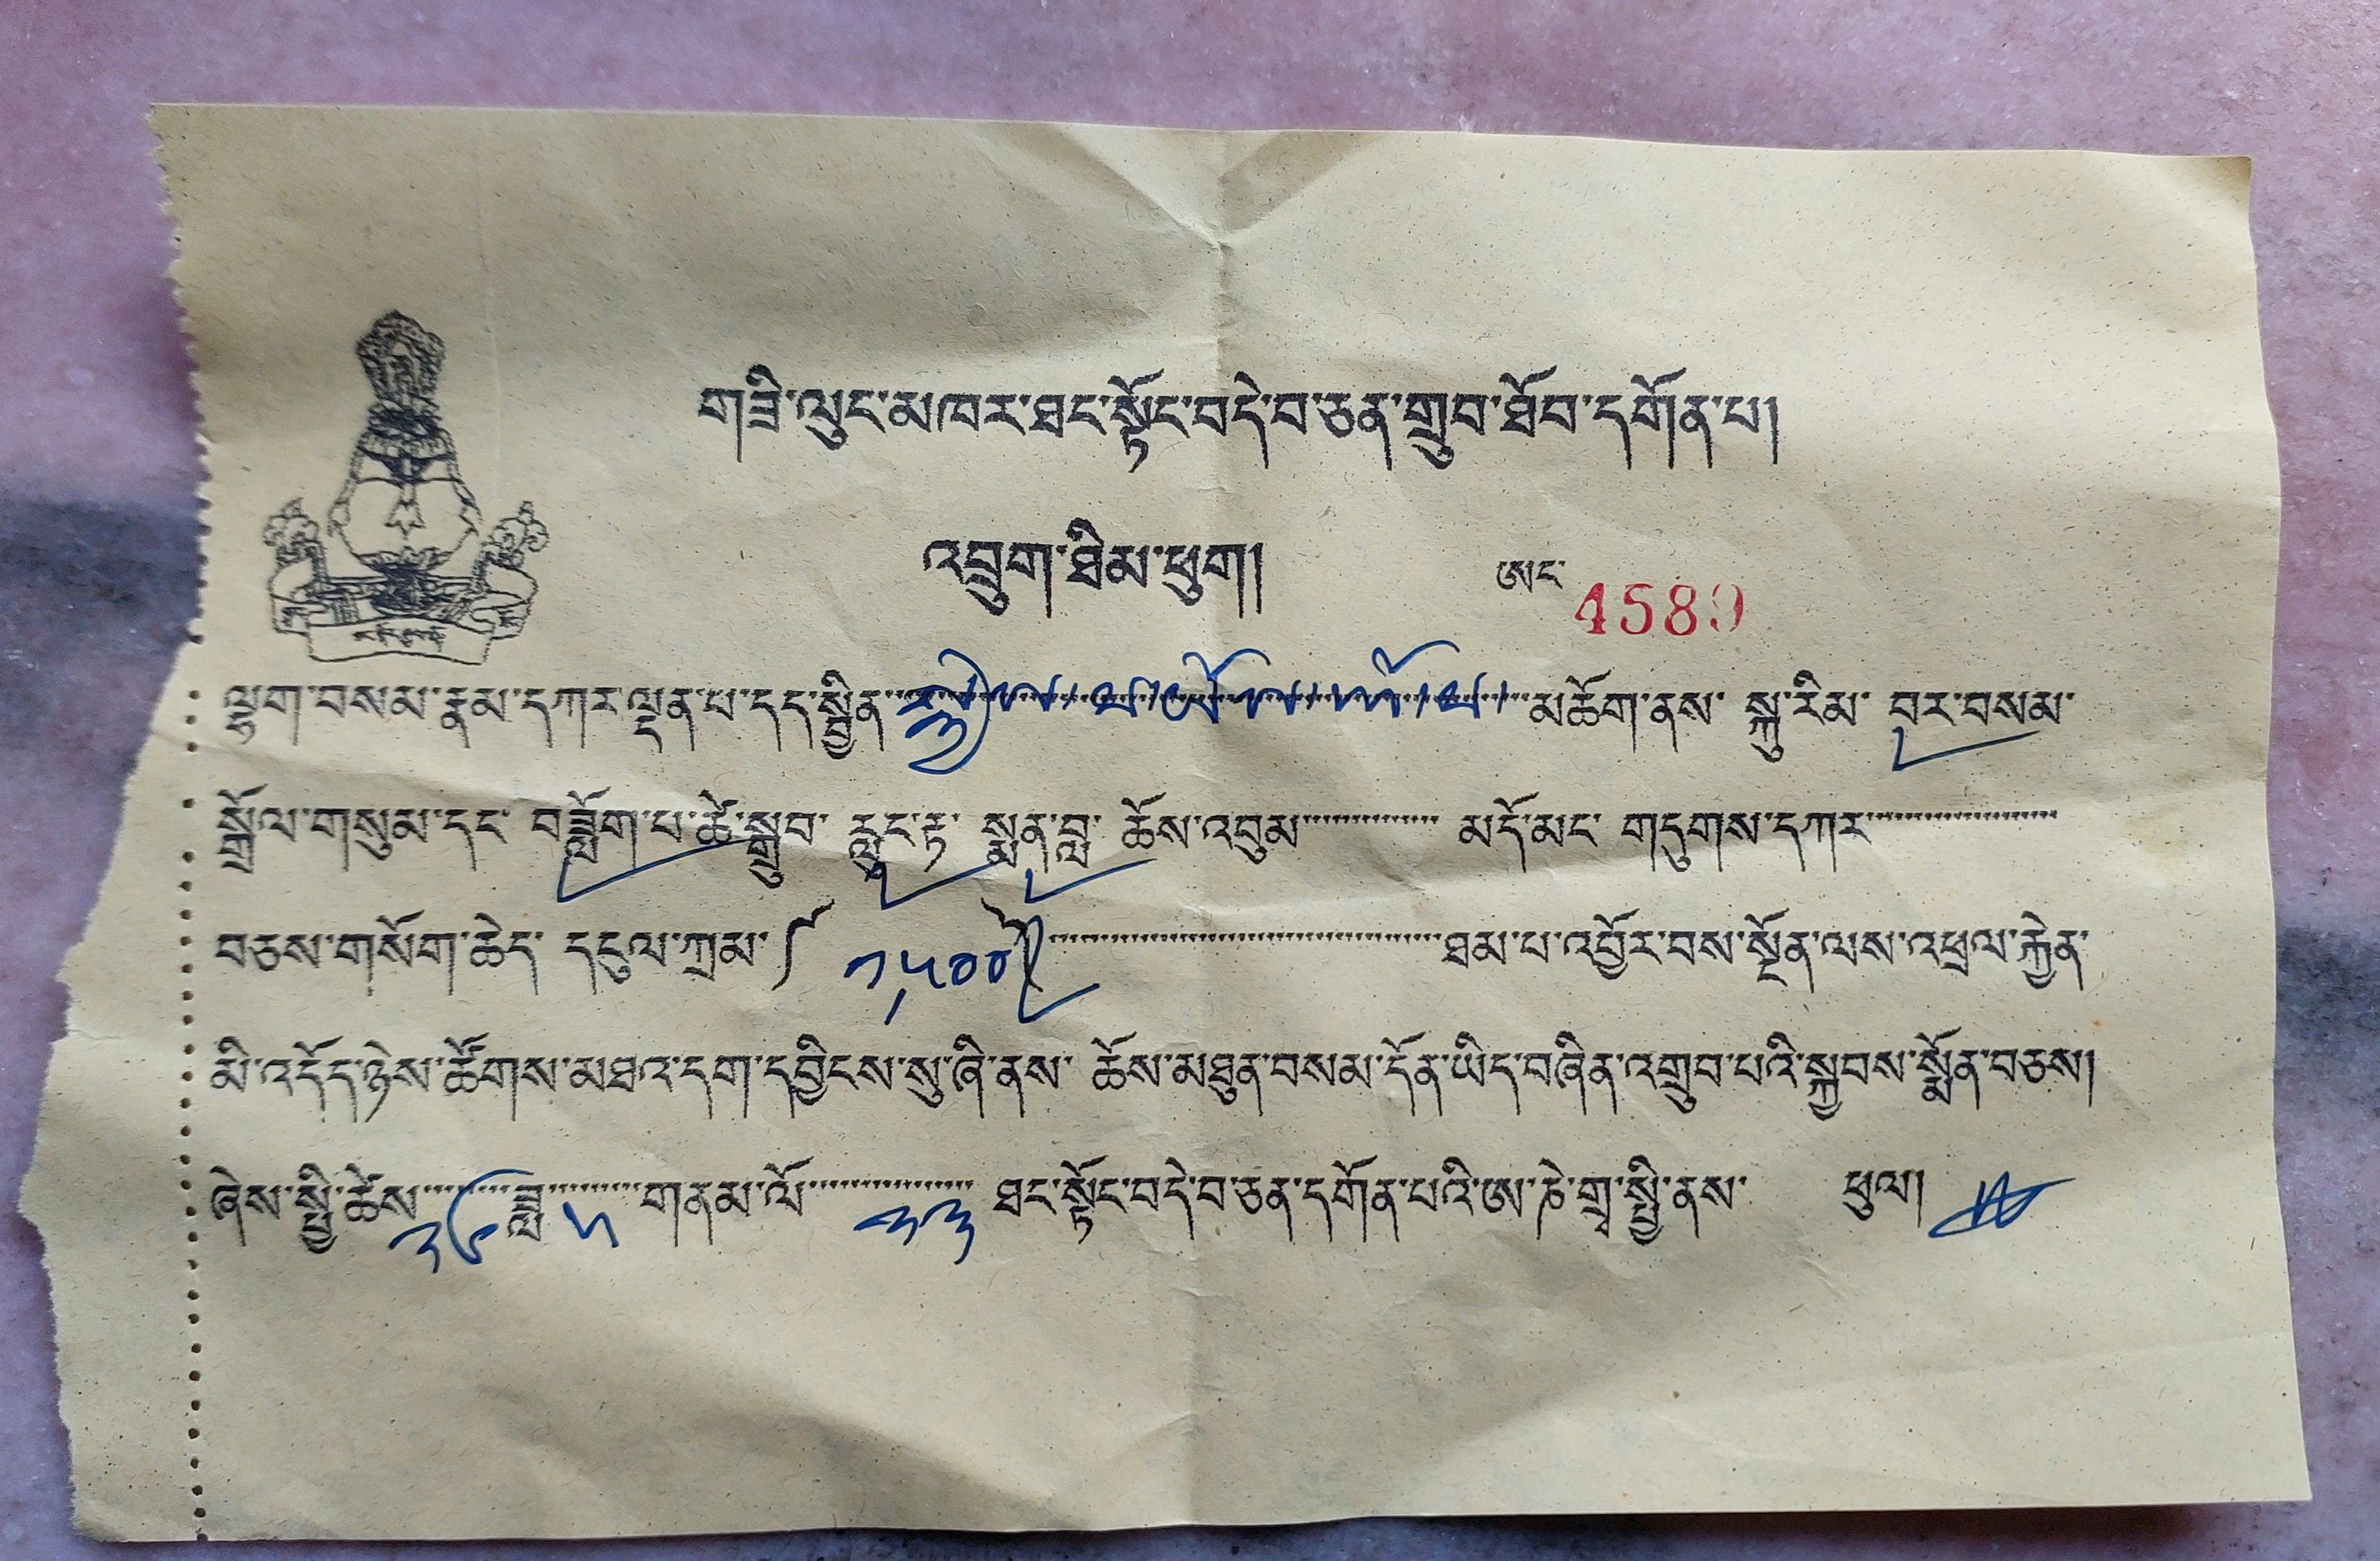 གཟི་ལུང་མཁར་ཐང་སྟོང་བདེ་བ་ཅན་གྲུབ་ཐོབ་དགོན་པ།
འབྲུག་ཐིམ་ཕུག།
ཨང་ 4589
ལྷག་བསམ་རྣམ་དཀར་ལྡན་པ་དད་སྦྱིན་ མཆོག་ནས་ སྐུ་རིམ་ བར་བསམ་
སྒྲོལ་གསུམ་དང་ བཟློག་པ་ཚེ་སྒྲུབ་ རླུང་རྟ་ སྨན་བླ་ ཆོས་འབུམ་ མདོ་མང་ གདུགས་དཀར་
བཅས་གསོག་ཆེད་ དངུལ་ཀྲམ་ ༼ ༡,༥༠༠ ༽ ཐམ་པ་འབྱོར་བས་སྔོན་ལས་འཕྲལ་རྐྱེན་
མི་འདོད་ཉེས་ཚོགས་མཐའ་དག་དབྱིངས་སུ་ཞི་ནས་ ཆོས་མཐུན་བསམ་དོན་ཡིད་བཞིན་འགྲུབ་པའི་སྐྱབས་སྨོན་བཅས།
ཞེས་སྤྱི་ཚེས་ ༢༦ ཟླ་ ༥ གནམ་ལོ་ ༢༣ ཐང་སྟོང་བདེ་བ་ཅན་དགོན་པའི་ཨ་ཎེ་གྲྭ་སྤྱི་ནས་ ཕུལ།